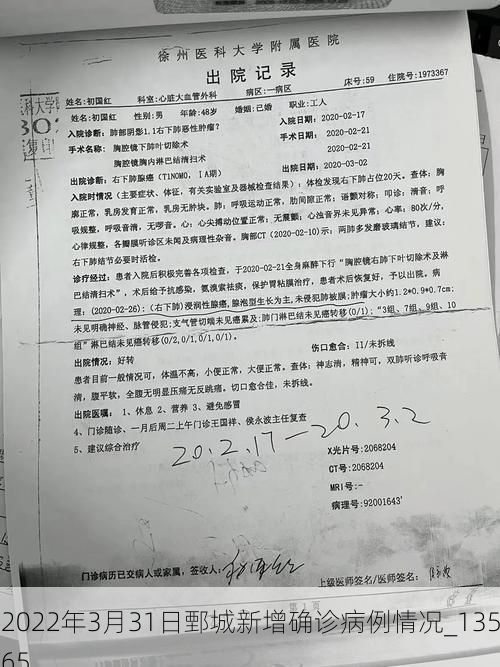 徐州医科大学附属医院
出院记录
姓名:初国红 科室:心脏大血管外科 病区:一病区 床号:59 住院号:1973367
姓名:初国红 性别:男 年龄:48岁 婚姻:已婚 职业:工人
入院诊断:肺部阴影1.1右下肺恶性肿瘤? 入院日期: 2020-02-17
手术名称: 胸腔镜下肺叶切除术 手术日期: 2020-02-21
胸腔镜胸内淋巴结清扫术 2020-02-21
出院诊断:右下肺腺癌(T1N0M0,ⅠA期) 出院日期: 2020-03-02
入院时情况(主要症状、体征,有关实验室及器械检查结果):体检发现右下肺占位20天。查体:胸
廓正常,乳房发育正常,乳房无肿块。肺:呼吸运动正常,肋间隙正常;语颤对称;叩诊:清音;呼
吸规整,呼吸音清,无啰音。心:心尖搏动位置正常;无震颤;心浊音界未见异常;心率:80次/分,
心律规整,各瓣膜听诊区未闻及病理性杂音。胸部CT(2020-02-10)示:两肺多发磨玻璃结节,建议:
右下肺结节必要时活检。
诊疗经过:患者入院后积极完善各项检查,于2020-02-21全身麻醉下行“胸腔镜右肺下叶切除术及淋
巴结清扫术”,术后给予抗感染,氨溴索祛痰,保护胃粘膜治疗,患者术后恢复好,予以出院。病
理:(2020-02-26):(右下肺)浸润性腺癌,腺泡型生长为主,未侵犯肺被膜;肿瘤大小约1.2*0.9*0.7cm;
未见明确神经、脉管侵犯;支气管切端未见癌累及;肺门淋巴结未见癌转移(0/1);“3组、7组、9组、10
组”淋巴结未见癌转移(0/2,0/1,0/1,0/1)。
出院情况: 好转 伤口愈合: II/未拆线
患者目前一般情况可,体温不高,小便正常,大便正常。查体:神志清,精神可,双肺听诊呼吸音
清,腹平软,全腹无明显压痛无反跳痛。切口愈合佳,未拆线。
出院医嘱: 1、休息 2、营养 3、避免感冒
4、门诊随诊、一月后周二上午门诊王国祥、侯永波主任复查
5、建议综合治疗
20.2.17—20.3.2
X光片号: 2068204
CT号: 2068204
MRI号:-
病理号: 92001643
门诊病历已交病人或家属,签收人:
上级医师签名/医师签名:
2022年3月31日鄄城新增确诊病例情况_135
65